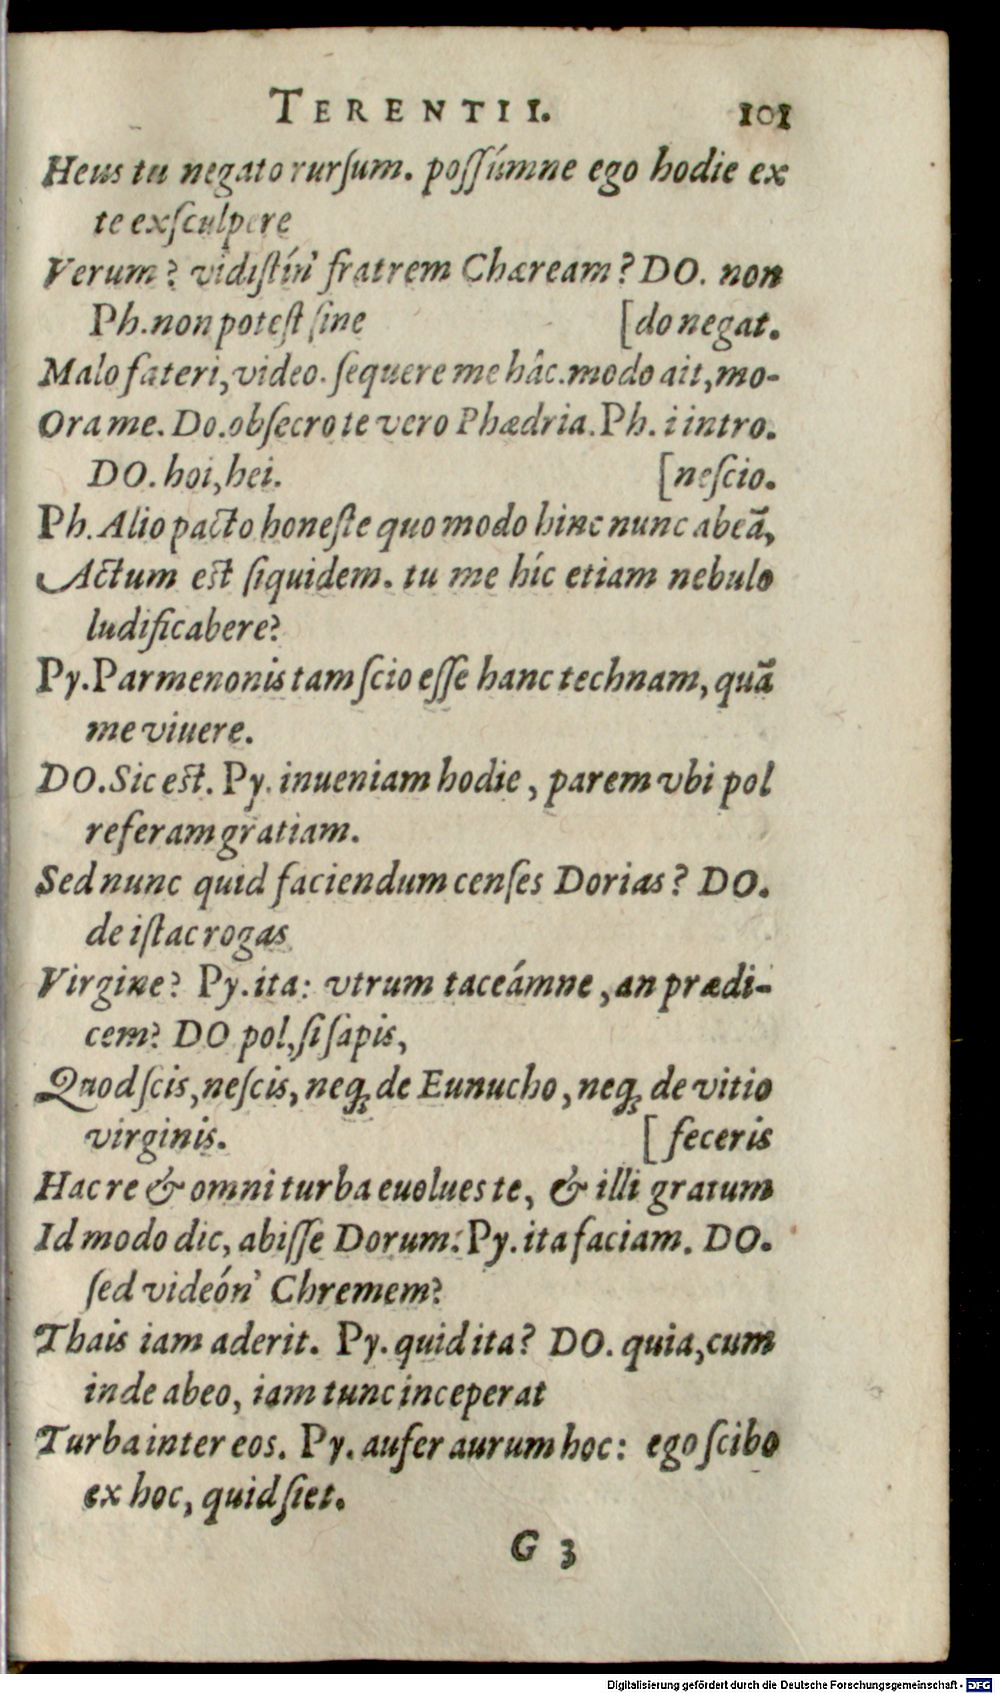 TERENTII. 101
Heus tu negato rurſum. poſſúmne ego hodie ex
te exſculpere
Verum? vidiſtín' fratrem Chæream? DO. non
Ph. non poteſt ſine [do negat.
Malo fateri, video. ſequere me hâc. modo ait, mo-
Ora me. Do. obſecro te vero Phædria. Ph. i intro.
DO. hoi, hei. [neſcio.
Ph. Alio pacto honeſte quo modo hinc nunc abeã,
Actum est ſiquidem. tu me híc etiam nebulo
ludificabere?
Py. Parmenonis tam ſcio eſſe hanc technam, quã
me viuere.
DO. Sic est. Py. inueniam hodie, parem vbi pol
referam gratiam.
Sed nunc quid faciendum cenſes Dorias? DO.
de iſtac rogas
Virgine? Py. ita: vtrum taceámne, an prædi-
cem? DO pol, ſi ſapis,
Quod ſcis, neſcis, neq; de Eunucho, neq; de vitio
virginis. [feceris
Hac re & omni turba euolues te, & illi gratum
Id modo dic, abiſſe Dorum. Py. ita faciam. DO.
ſed videón' Chremem?
Thais iam aderit. Py. quid ita? DO. quia, cum
inde abeo, iam tunc inceperat
Turba inter eos. Py. aufer aurum hoc: ego ſcibo
ex hoc, quid ſiet.
G 3
Digitalisierung gefördert durch die Deutsche Forschungsgemeinschaft - DFG